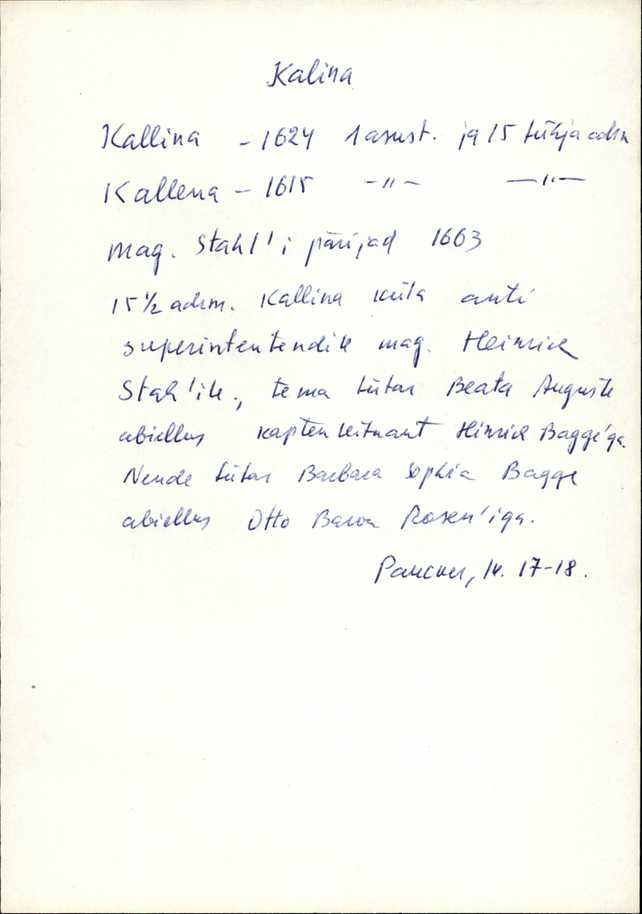 Kalina
Kallina – 1624 1 asust. ja 15 tühja adra
Kallena – 1615 –"– –"–
mag. Stahl'i pärijad 1663
15 1/2 adrm. Kallina küla anti
superintentendile mag. Heinrich
Stahl'ile, tema tütar Beata Auguste
abiellus kapten leitnant Hinrich Bagge'ga.
Nende tütar Barbara Sophia Bagge
abiellus Otto Baron Rosen'iga.
Paucker, lk. 17-18.